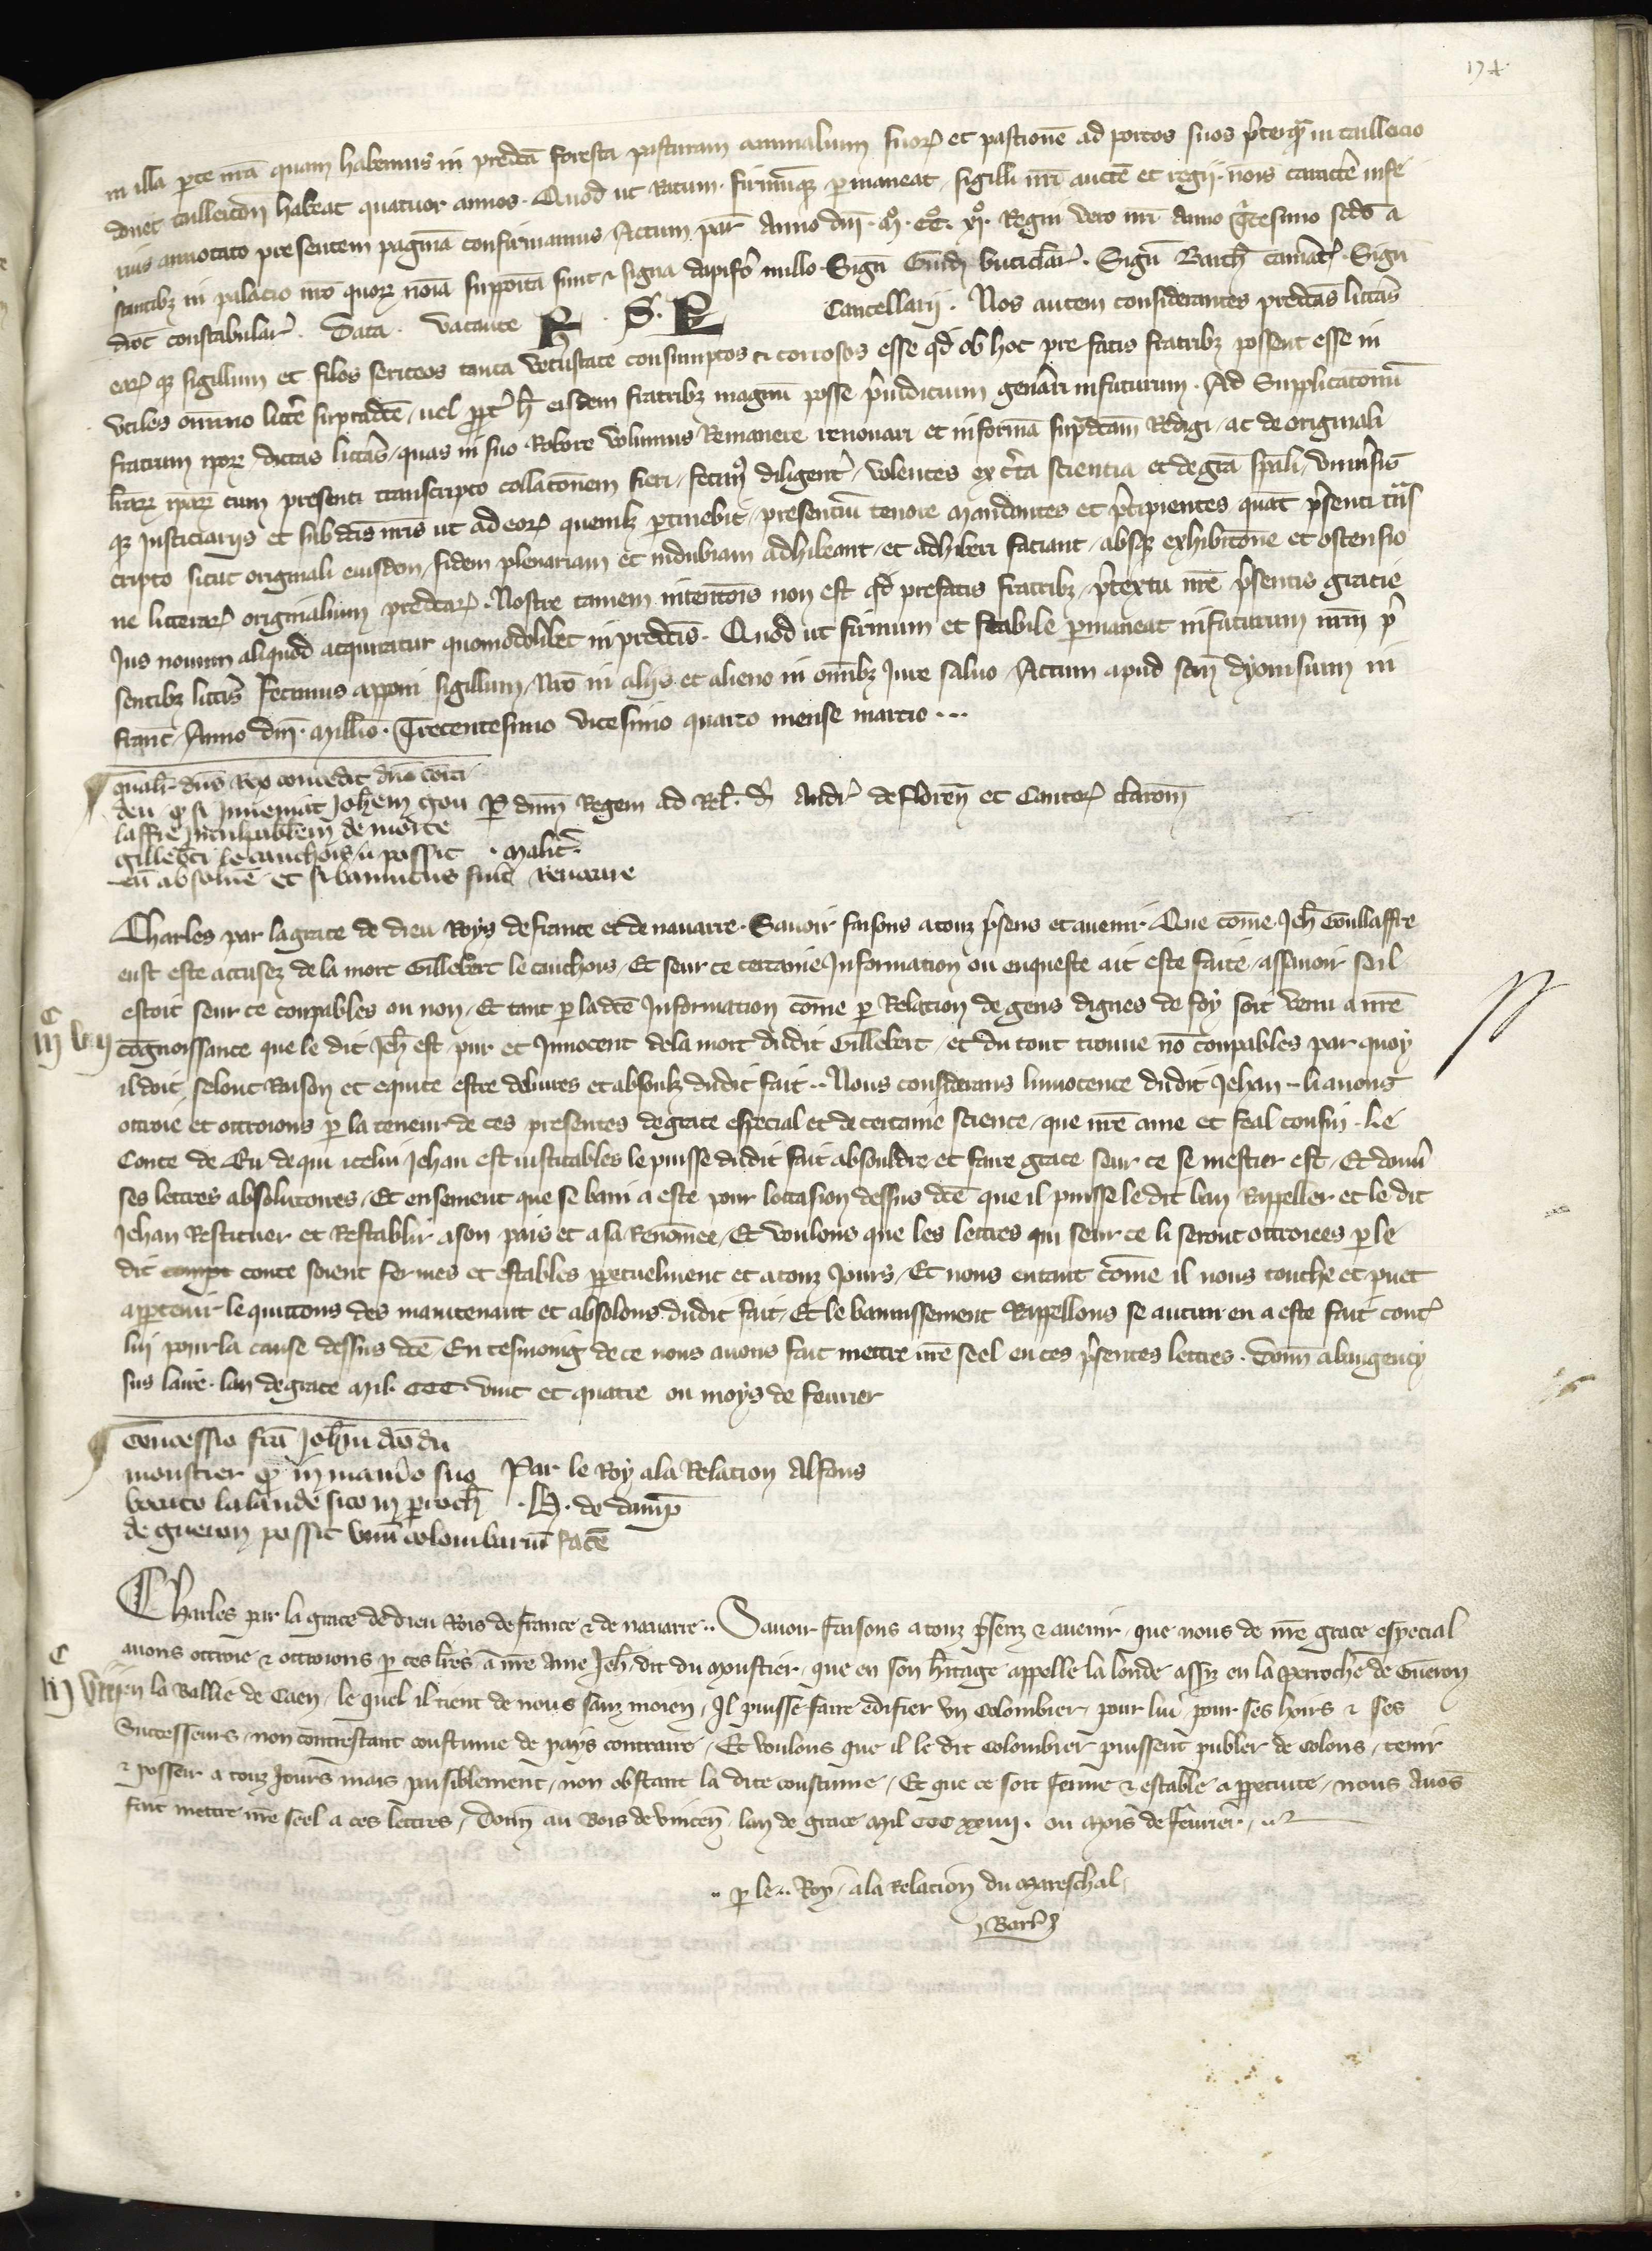 174
in illa p̱te nrā quam habemus in predcā foresta pasturam animalium suoꝝ et pastionē ad porcos suos p̃terq̃ in tailleicio
donec tailleiciū habeat quatuor annos. Quod ut ratum firmūqꝫ p̱maneat sigilli nrī auctē et regij nōis caractē infe
rius annotato presentem paginā confirmamus. Actum par̃ Anno dnī. mº. ccº. xjº. Regni vero nrī Anno tͥcesimo scdō a
stantibꝫ in palacio nrō quoꝝ nōia supposita sunt ⁊ signa dapifo nullo. Signū Guid̃ buticlar̃. Signū Barth̃ camar̃. Signū
droc̃ constabular̃. Data vacante Cancellarij. Nos autem considerantes predcās littās
eaꝝ qꝫ sigillum et filos sericeos tanta vetustate consumptos et corrosos esse qd̃ ob hoc pre fatis fratribꝫ possent esse in
vtiles omnino littē supradcē, uel ppt̃ h̃ eisdem fratribꝫ magnū posse p̃iudicium gen̄ari in futurum. Ad Supplicatōnē
fratrum ipoꝝ dictas littās, quas in suo Robore volumus Remanere renouari et in formā sup̃dcām Redigi, ac de originali
lrāꝝ ipaꝝ cum presenti transcripto collatōnem fieri, fecimꝰ diligent̃, volentes ex c̃ta scientia et de grā spāli, vniu̾sis
qꝫ Justiciarijs et subdcīs nrīs ut ad eoꝝ quemlꝫ p̱tinebit, presentiū tenore mandantes et p̃cipientes quat̃ p̃senti trās
cripto sicut originali eiusdem, fidem plenariam et indubiam adhibeant, et adhiberi faciant, absqꝫ exhibitōne et ostensio
ne litteraꝝ originalium predcāꝝ. Nostre tamen intentōis non est qd̃ prefatis fratribꝫ, p̃textu nrē p̃sentis gratie
Jus nouum aliquod acquiratur quomodolibet in predcīs. Quod ut firmum et stabile p̱maneat in futurum nrm̃ p̃
sentibꝫ littīs fecimus apponi sigillum, Nrō in alijs et alieno in omībꝫ Jure saluo. Actum apud scm̃ dyonisium in
franc̃, Anno dnī. Millō. Trecentesimo vicesimo quarto mense marcio...
qualr̃ dnūs Rex concedit dnō comiti
deu q̱ si Inueniat Johēm Gou p̱ dnm̃ Regem ad Rel̃. dī Andr̃ de floreñ et Cantoꝝ claromī
laffre inculpabilem de morte
gillebti le cauchois, ip̃ possit . Malic̃.
eū absoluē et si bannitus fuit Reuocare
Charles par la grace de dieu Roys de france et de nauarre. Sauoir faisons a touz p̃sens et auenir Que cōme Jeh̃ Goullaffre
eust este accusez de la mort Gillebert le cauchois, Et seur ce certaine Information ou enqueste ait este faite, assauoir se il
estoit seur ce coupables ou non, Et tant p̱ ladcē Information cōme p̱ Relation de gens dignes de foy soit venu a nrē
iijͨ vij
cōgnoissance que le dit Jeh̃ est pur et Innocent de la mort dudit Gillebert, et du tout trouue nō coupables par quoy
il doit selonc Raison et equite estre deliures et absoulz dudit fait.. Nous considerans linnocence dudit Jehan li auons
ottroie et ottroions p̱ la teneur de ces presentes de grace especial et de certaine science, que nrē ame et feal cousin . le
Conte de Eu de qui icelui Jehan est iusticables le puisse dudit fait absouldre et faire grace seur ce se mestier est, Et donn̄
ses lettres absolutoires, Et ensement que se bani a este pour loccasion dessus dcē que il puisse le dit ban Rappeller et le dit
Jehan Restituer et Restablir a son pais et a sa Renōmee, Et voulons que les lettres qui seur ce li seront ottroiees p̱ le
dit compt conte soient fermes et estables ppetuelment et a touz Jours, Et nous entant cōme il nous touche et puet
app̱tenir le quittons des maintenant et absolons dudit fait, Et le bannissement Rappellons se aucun en a este fait cont̃
lui pour la cause dessus dcē. En tesmoing de ce nous auons fait mettre nrē seel en ces p̃sentes lettres. Donn̄ a baugency
sus laire. lan de grace Mil. CCC vint et quatre ou moys de feurier
Concessio fcā Johī dcō du
moustier q̱ in manio suo Par le Roy a la Relacion Alfons
vocato la lande sito in p̱roch̃ . H. de damp̃
de gueron possit vnū colombariū facē
Charles par la grace de dieu Rois de france ⁊ de nauarre.. Sauoir faisons a touz p̃senz ⁊ auenir, que nous de nrē grace especial
auons ottroie ⁊ ottroions p̱ ces lrēs a nrē ame Jeh̃, dit du Moustier, que en son h̃itage appelle la londe assiz en la perroche de Gueron
iijͨ viij
en la Baillie de Caen, le quel il tient de nous sanz moien, Il puisse faire edifier vn Colombier, pour lui pour ses hoirs ⁊ ses
Successeurs, non contrestant coustume de pays contraire, Et voulons que il le dit Colombier puissent publer de Colons, tenir
⁊ posseir a touz Jours mais paisiblement, non obstant la dite coustume, Et que ce soit ferme ⁊ estable a ppetuite, nous Auōs
fait mettre nrē seel a ces lettres, Donn̄ au Bois de vincen̄, lan de grace Mil CCC xxiiij. ou Mois de feurier, ..
.. p̱ le.. Roy, a la Relacion du Mareschal,
Barr̃